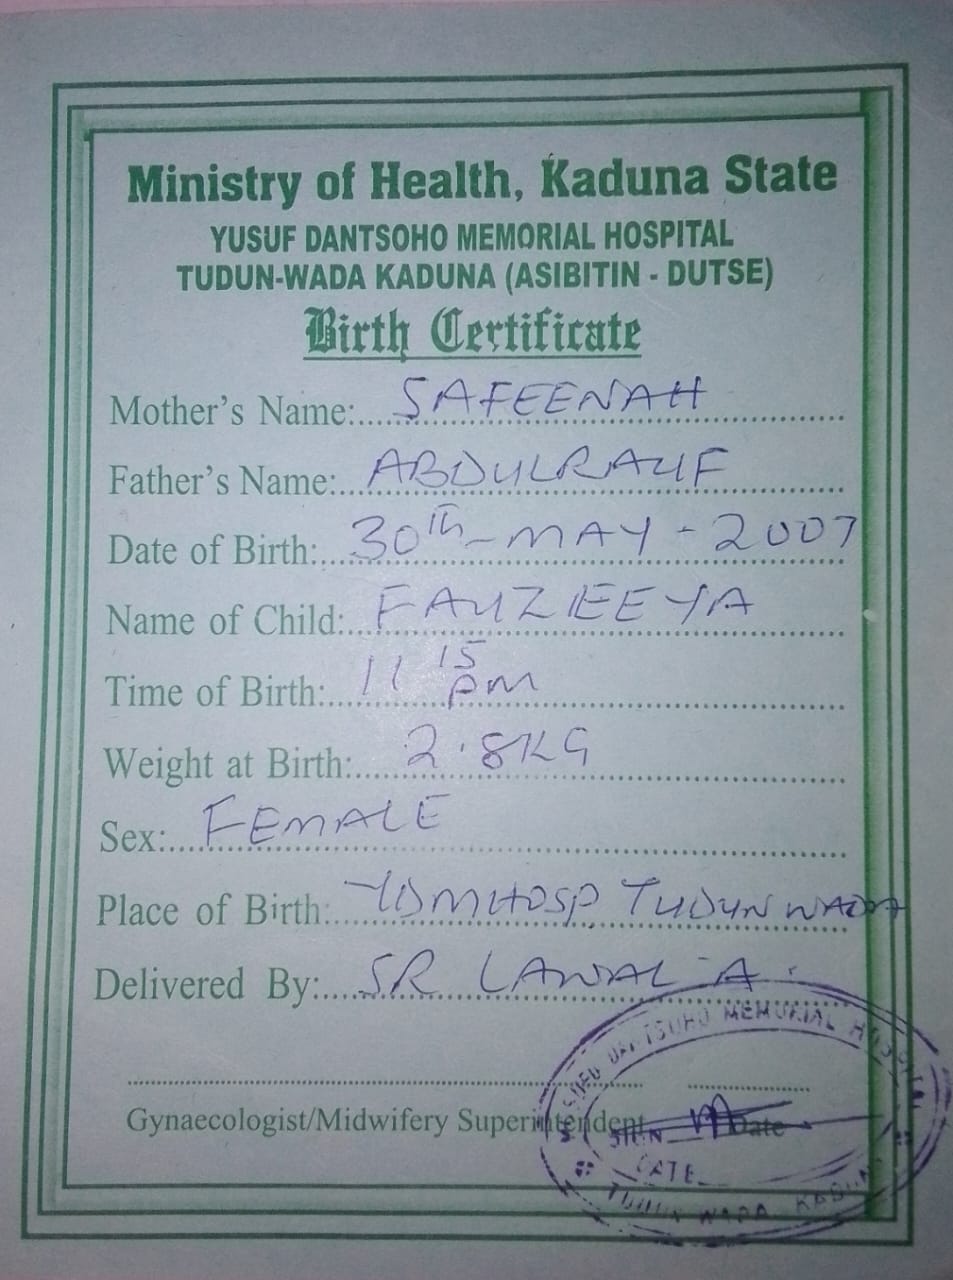 Ministry of Health, Kaduna State
YUSUF DANTSOHO MEMORIAL HOSPITAL
TUDUN-WADA KADUNA (ASIBITIN - DUTSE)
Birth Certificate
Mother's Name: SAFEENAH
Father's Name: ABDULRAUF
Date of Birth: 30th - MAY - 2007
Name of Child: FAUZIEEYA
Time of Birth: 11 15 pm
Weight at Birth: 2.8KG
Sex: FEMALE
Place of Birth: YDMHOSP TUDUN WADA
Delivered By: SR LAWAL A.
Gynaecologist/Midwifery Superintendent Date
DANTSOHO MEMORIAL HOSPITAL
SIGN
DATE
TUDUN WADA KADUNA